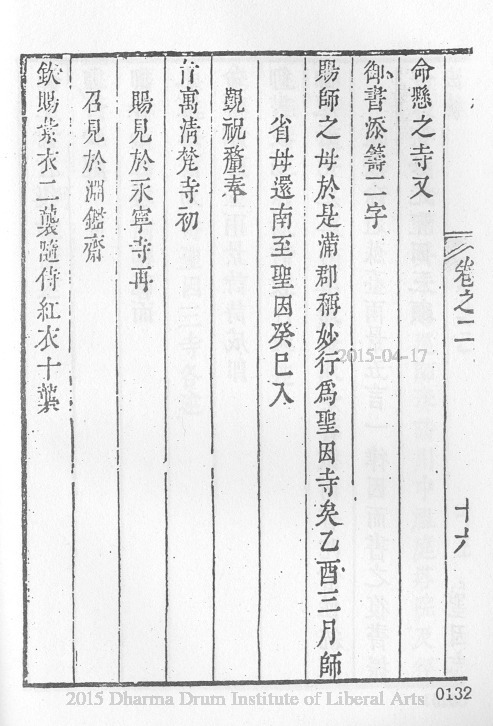 卷之二 十六
命懸之寺又
御書添籌二字
賜師之母於是滿郡稱妙行爲聖因寺矣乙酉三月師
省母還南至聖因癸巳入
覲祝釐奉
旨寓清梵寺初
賜見於永寧寺再
召見於淵鑑齋
欽賜紫衣二襲隨侍紅衣十襲
2015-04-17
2015 Dharma Drum Institute of Liberal Arts
0132